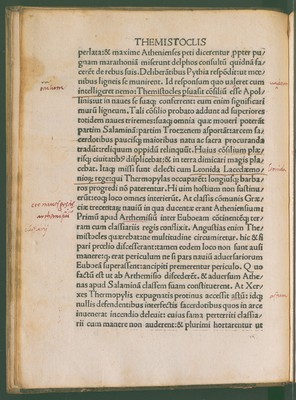 THEMISTOCLIS
perlata: & maxime Athenienses peti dicerentur, ppter pu
gnam marathoniã miserunt delphos consultũ quidnã fa
cerẽt de rebus suis. Deliberãtibus Pythia respõdit ut mœ
nibus ligneis se munirent. Id responsum quo ualeret cum
intelligeret nemo: Themistocles psuasit cõsiliũ esse Apol
linis: ut in naues se suaq; conferrent: eum enim significari
murũ ligneum. Tali cõsilio probato addunt ad superiores
totidem naues triremes: suaq; omnia quæ moueri poterãt
partim Salaminã: partim Trœzenem asportãt: arcem sa
cerdotibus paucisq; maioribus natu ac sacra procuranda
tradũt: reliquum oppidũ relinquũt. Huius cõsilium plæ
risq; ciuitatib⁹ displicebat: & in terra dimicari magis pla
cebat. Itaq; missi sunt delecti cum Leonida Lacedæmo
nioȝ rege: qui Thermopylas occuparẽt: longiusq; barba
ros progredi nõ paterentur. Hi uim hostium non sustinu
erũt: eoq; loco omnes interierũt. At classis cõmunis Græ
ciæ trecentaȝ nauiũ in qua ducentæ erant Atheniensium:
Primũ apud Arthemisiũ inter Euboeam cõtinentẽq; ter
ram cum classiariis regis conflixit. Angustias enim The
mistocles quærebat: ne multitudine circumiretur. hic & si
pari prœlio discesserant: tamen eodem loco non sunt ausi
manere: q; erat periculum ne si pars nauiũ aduersariorum
Euboeã superasset: ancipiti premerentur periculo. Q uo
factũ est ut ab Arthemisio discederẽt: & aduersum Athe
nas apud Salaminã classem suam constituerent. At Xer
xes Thermopylis expugnatis protinus accessit astu: idq;
nullis defendentibus interfectis sacerdotibus quos in arce
inuenerat incendio deleuit: cuius fama perterriti classia
rii cum manere non auderent: & plurimi hortarentur ut